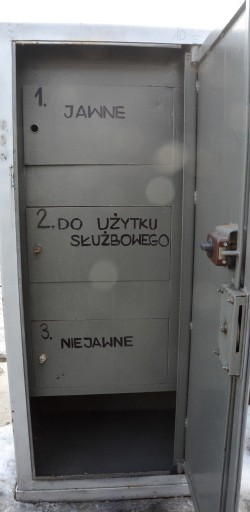 1.
JAWNE
2. DO UŻYTKU
SŁUŻBOWEGO
3. NIEJAWNE